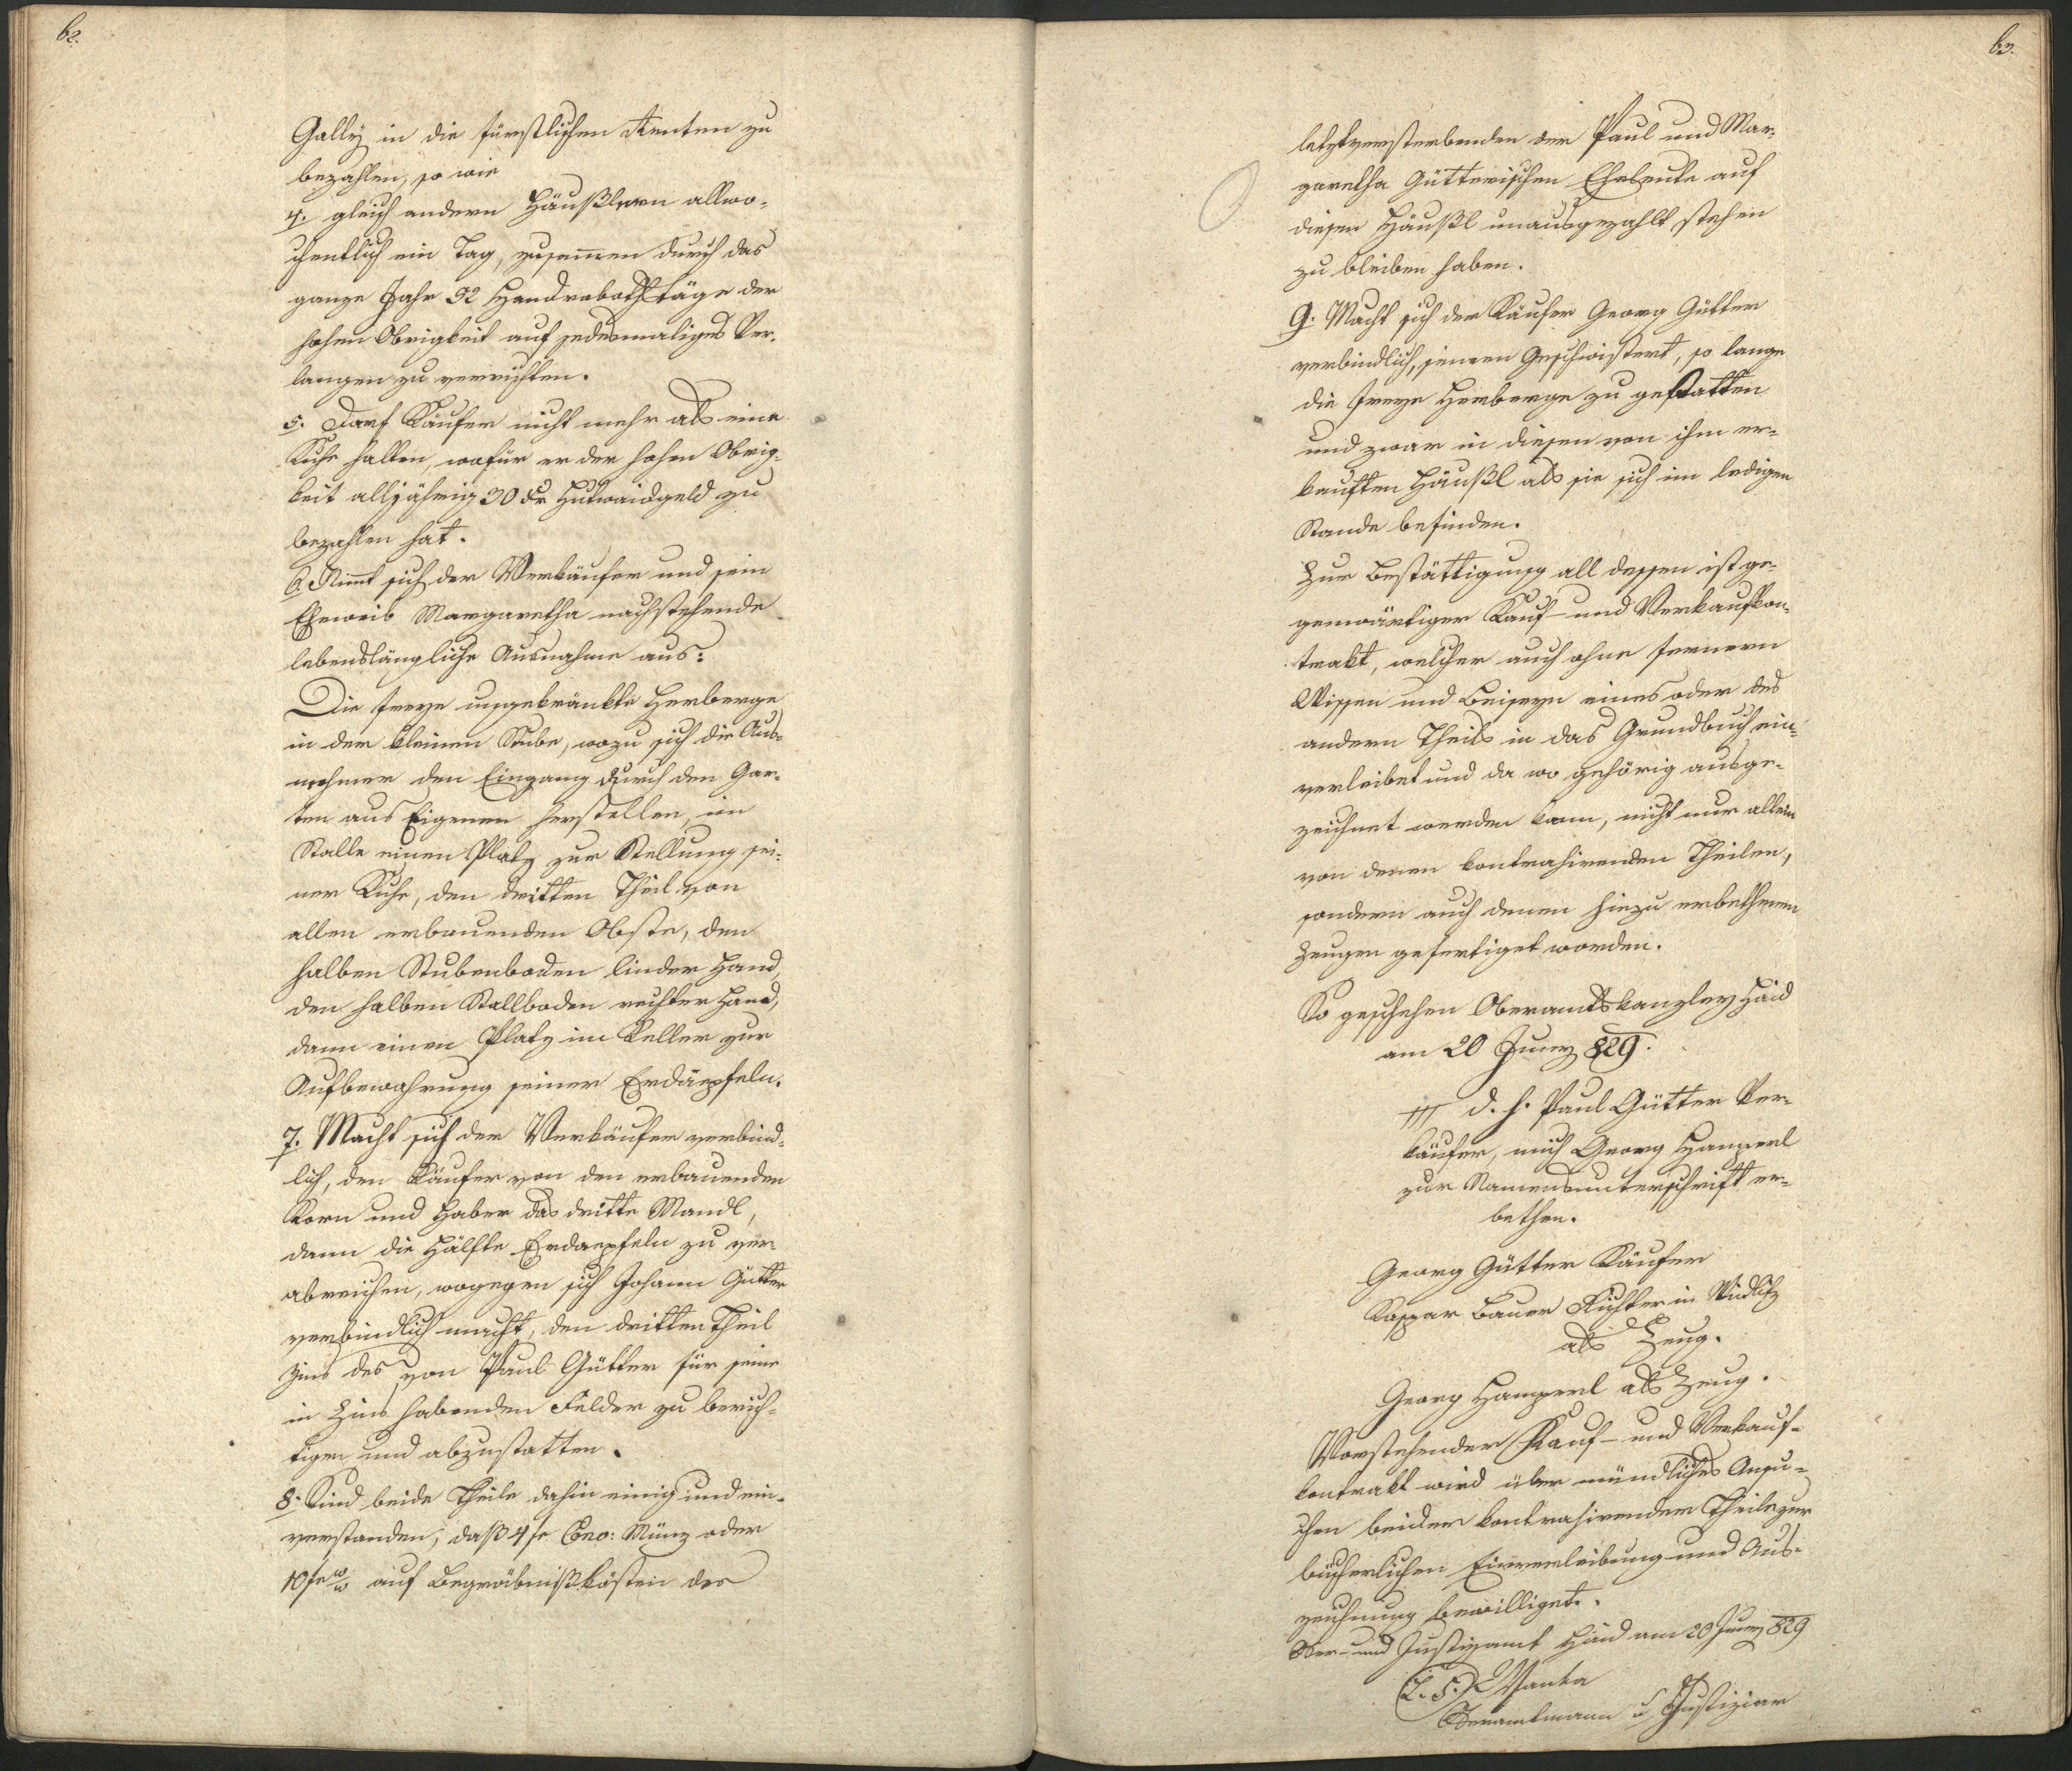 62.
Gally in die fürstlichen Renten zu
bezahlen, so wie
4. gleich andern Häußlern allwo-
chentlich ein Tag, zusammen durch das
ganze Jahr 52 Handrobothtäge der
hohen Obrigkeit auf jedesmaliges Ver-
langen zu verrichten.
5. Darf Käufer nicht mehr als eine
Kuhe halten, wofür er der hohen Obrig-
keit alljährig 30 xr Hutwaidgeld zu
bezahlen hat.
6. Nimmt sich der Verkäufer und sein
Eheweib Margaretha nachstehende
lebenslängliche Ausnahme aus:
Die freye ungekränkte Herberge
in der kleinen Stube, wozu sich die Aus-
nehmer den Eingang durch den Gar-
ten aus Eigenen herstellen, im
Stalle einen Platz zur Stellung sei-
ner Kuhe, den dritten Theil von
allen erbauenden Obste, den
halben Stubenboden linker Hand,
den halben Stallboden rechter Hand,
dann einen Platz im Keller zur
Aufbewahrung seiner Erdäepfeln.
7. Macht sich der Verkäufer verbind-
lich, den Käufer von den erbauenden
Korn und Haber das dritte Mandl,
dann die Hälfte Erdaepfeln zu ver-
abreichen, wogegen sich Johann Gütter
verbindlich macht, den dritten Theil
Zins des von Paul Gütter für seine
in Zins habenden Felder zu berich-
tigen und abzustatten.
8. Sind beide Theile dahin einig und ein-
verstanden, daß 4 fr Cono: Münz oder
10 fr w/w auf Begräbnißkösten des
63.
letztversterbenden der Paul und Mar-
garetha Gütterischen Eheleute auf
diesen Häußl unausgezahlt stehen
zu bleiben haben.
9. Macht sich der Käufer Georg Gütter
verbindlich, seinen Geschwistert, so lange
die freye Herberge zu gestatten
und zwar in diesen von ihm er-
kauften Häußl als sie sich im ledigen
Stande befinden.
Zur Bestättigung all dessen ist ge-
genwärtiger Kauf- und Verkaufkon-
trakt, welcher auch ohne fernern
Wissen und Beiseyn eines oder des
andern Theils in das Grundbuch ein-
verleibet und da wo gehörig ausge-
zeichnet werden kann, nicht nur allein
von denen kontrahirenden Theilen,
sondern auch denen hiezu erbethenen
Zeugen gefertiget worden.
So geschehen Oberamtskanzley Haid
am 20 Juny 829.
+++ d. h. Paul Gütter Ver-
käufer, mich Georg Hamperl
zur Namensunterschrift er-
bethen.
Georg Gütter Käufer
Kaspar Bauer Richter in
als Zeug.
Georg Hamperl als Zeug.
Vorstehender Kauf- und Verkauf-
kontrakt wird über mündliches Ansu-
chen beider kontrahirender Theile zur
bücherlichen Einverleibung und Aus-
zeichnung bewilliget.
Ober- und Justizamt Haid am 20 Juny 829
(L. S.) Wanka
Oberamtmann u Justiziar